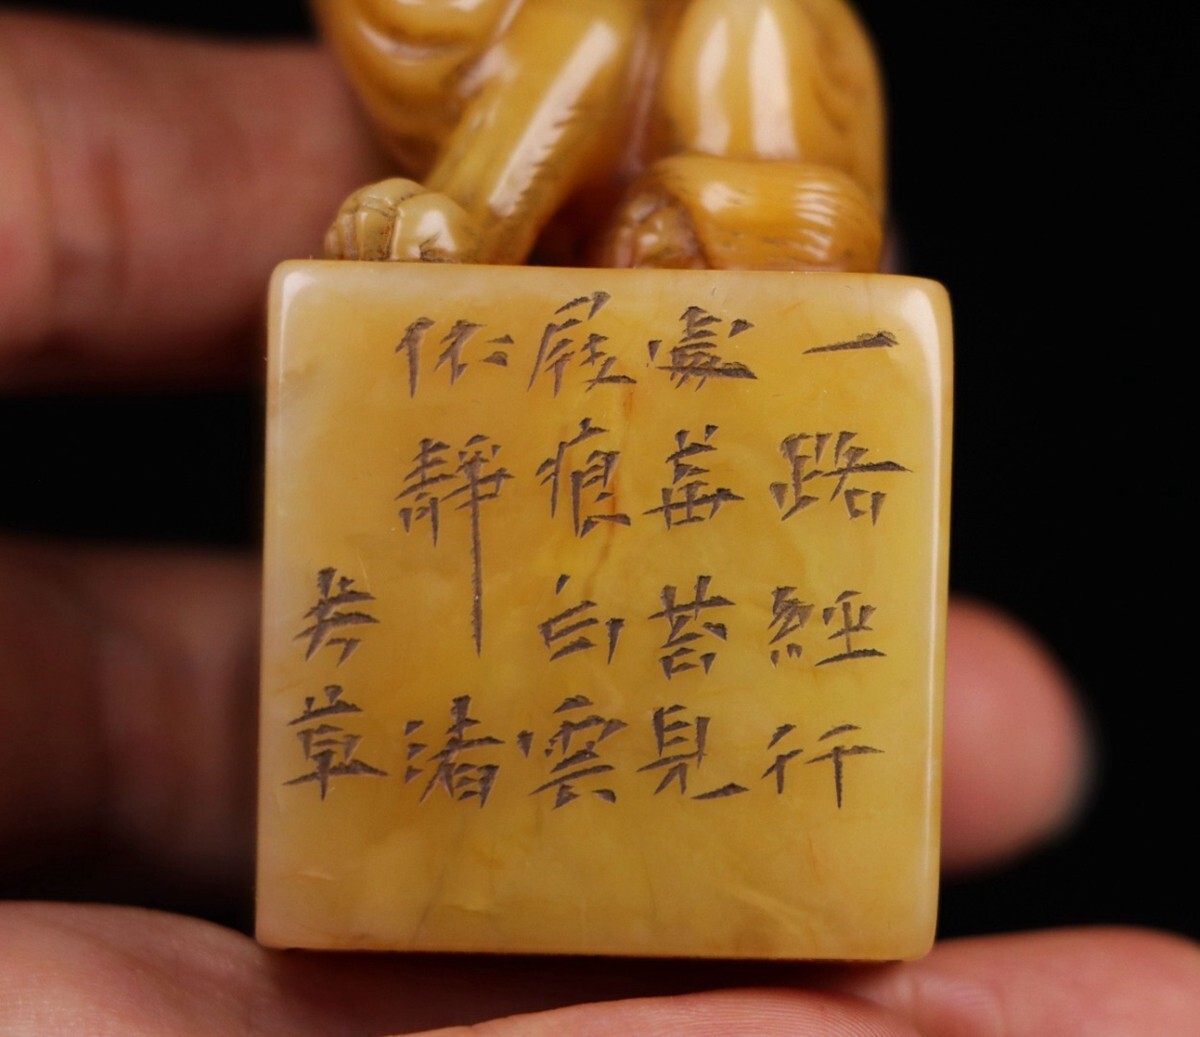 一路經行
處莓苔見
屐痕白雲
依靜渚
芳草